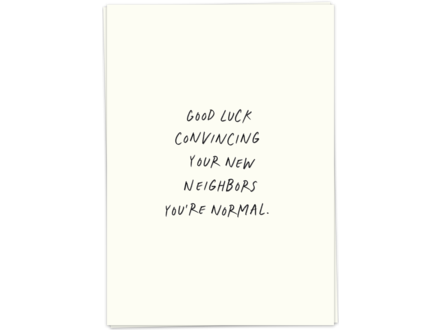 GOOD LUCK
CONVINCING
YOUR NEW
NEIGHBORS
YOU'RE NORMAL.